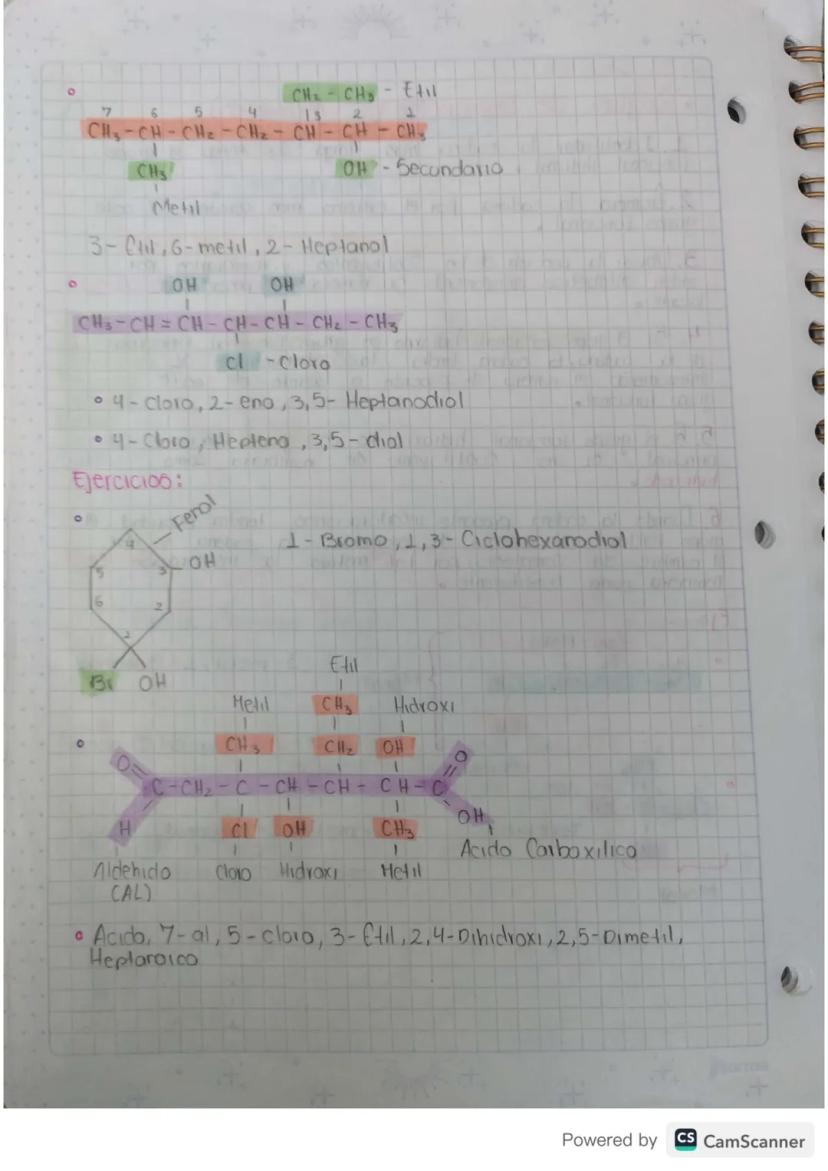 CH₂ - CH₃ - Etil
7 6 5 4 3 2 1
CH₃ - CH - CH₂ - CH₂ - CH - CH - CH₃
CH₃ OH - Secundario
Metil
3- Etil, 6-metil, 2- Heptanol
OH OH
CH₃ - CH = CH - CH - CH - CH₂ - CH₃
Cl - Cloro
4- Cloro, 2-eno, 3,5- Heptanodiol
4- Cloro, Hepteno, 3,5- diol
Ejercicios:
Fenol
4
1- Bromo, 1,3- Ciclohexanodiol
5 3 OH
6 2
1
Br OH
Etil
Metil CH₃ Hidroxi
CH₃ CH₂ OH
O O
C - CH₂ - C - CH - CH - CH - C
H Cl OH CH₃ OH
Acido Carboxilico
Aldehido Cloro Hidroxi Metil
(AL)
Acido, 7-al, 5-cloro, 3-Etil, 2,4-Dihidroxi, 2,5-Dimetil,
Heptanoico
Powered by CS CamScanner